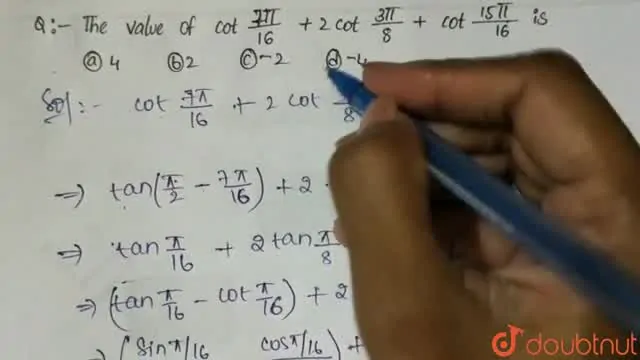 Q:- The value of cot 7π/16 + 2 cot 3π/8 + cot 15π/16 is
ⓐ 4 ⓑ 2 ⓒ -2 ⓓ -4
Sol:- cot 7π/16 + 2 cot /8
=> tan(π/2 - 7π/16) + 2
=> tan π/16 + 2 tan π/8
=> (tan π/16 - cot π/16) + 2
=> (sin π/16 cos π/16) +
doubtnut